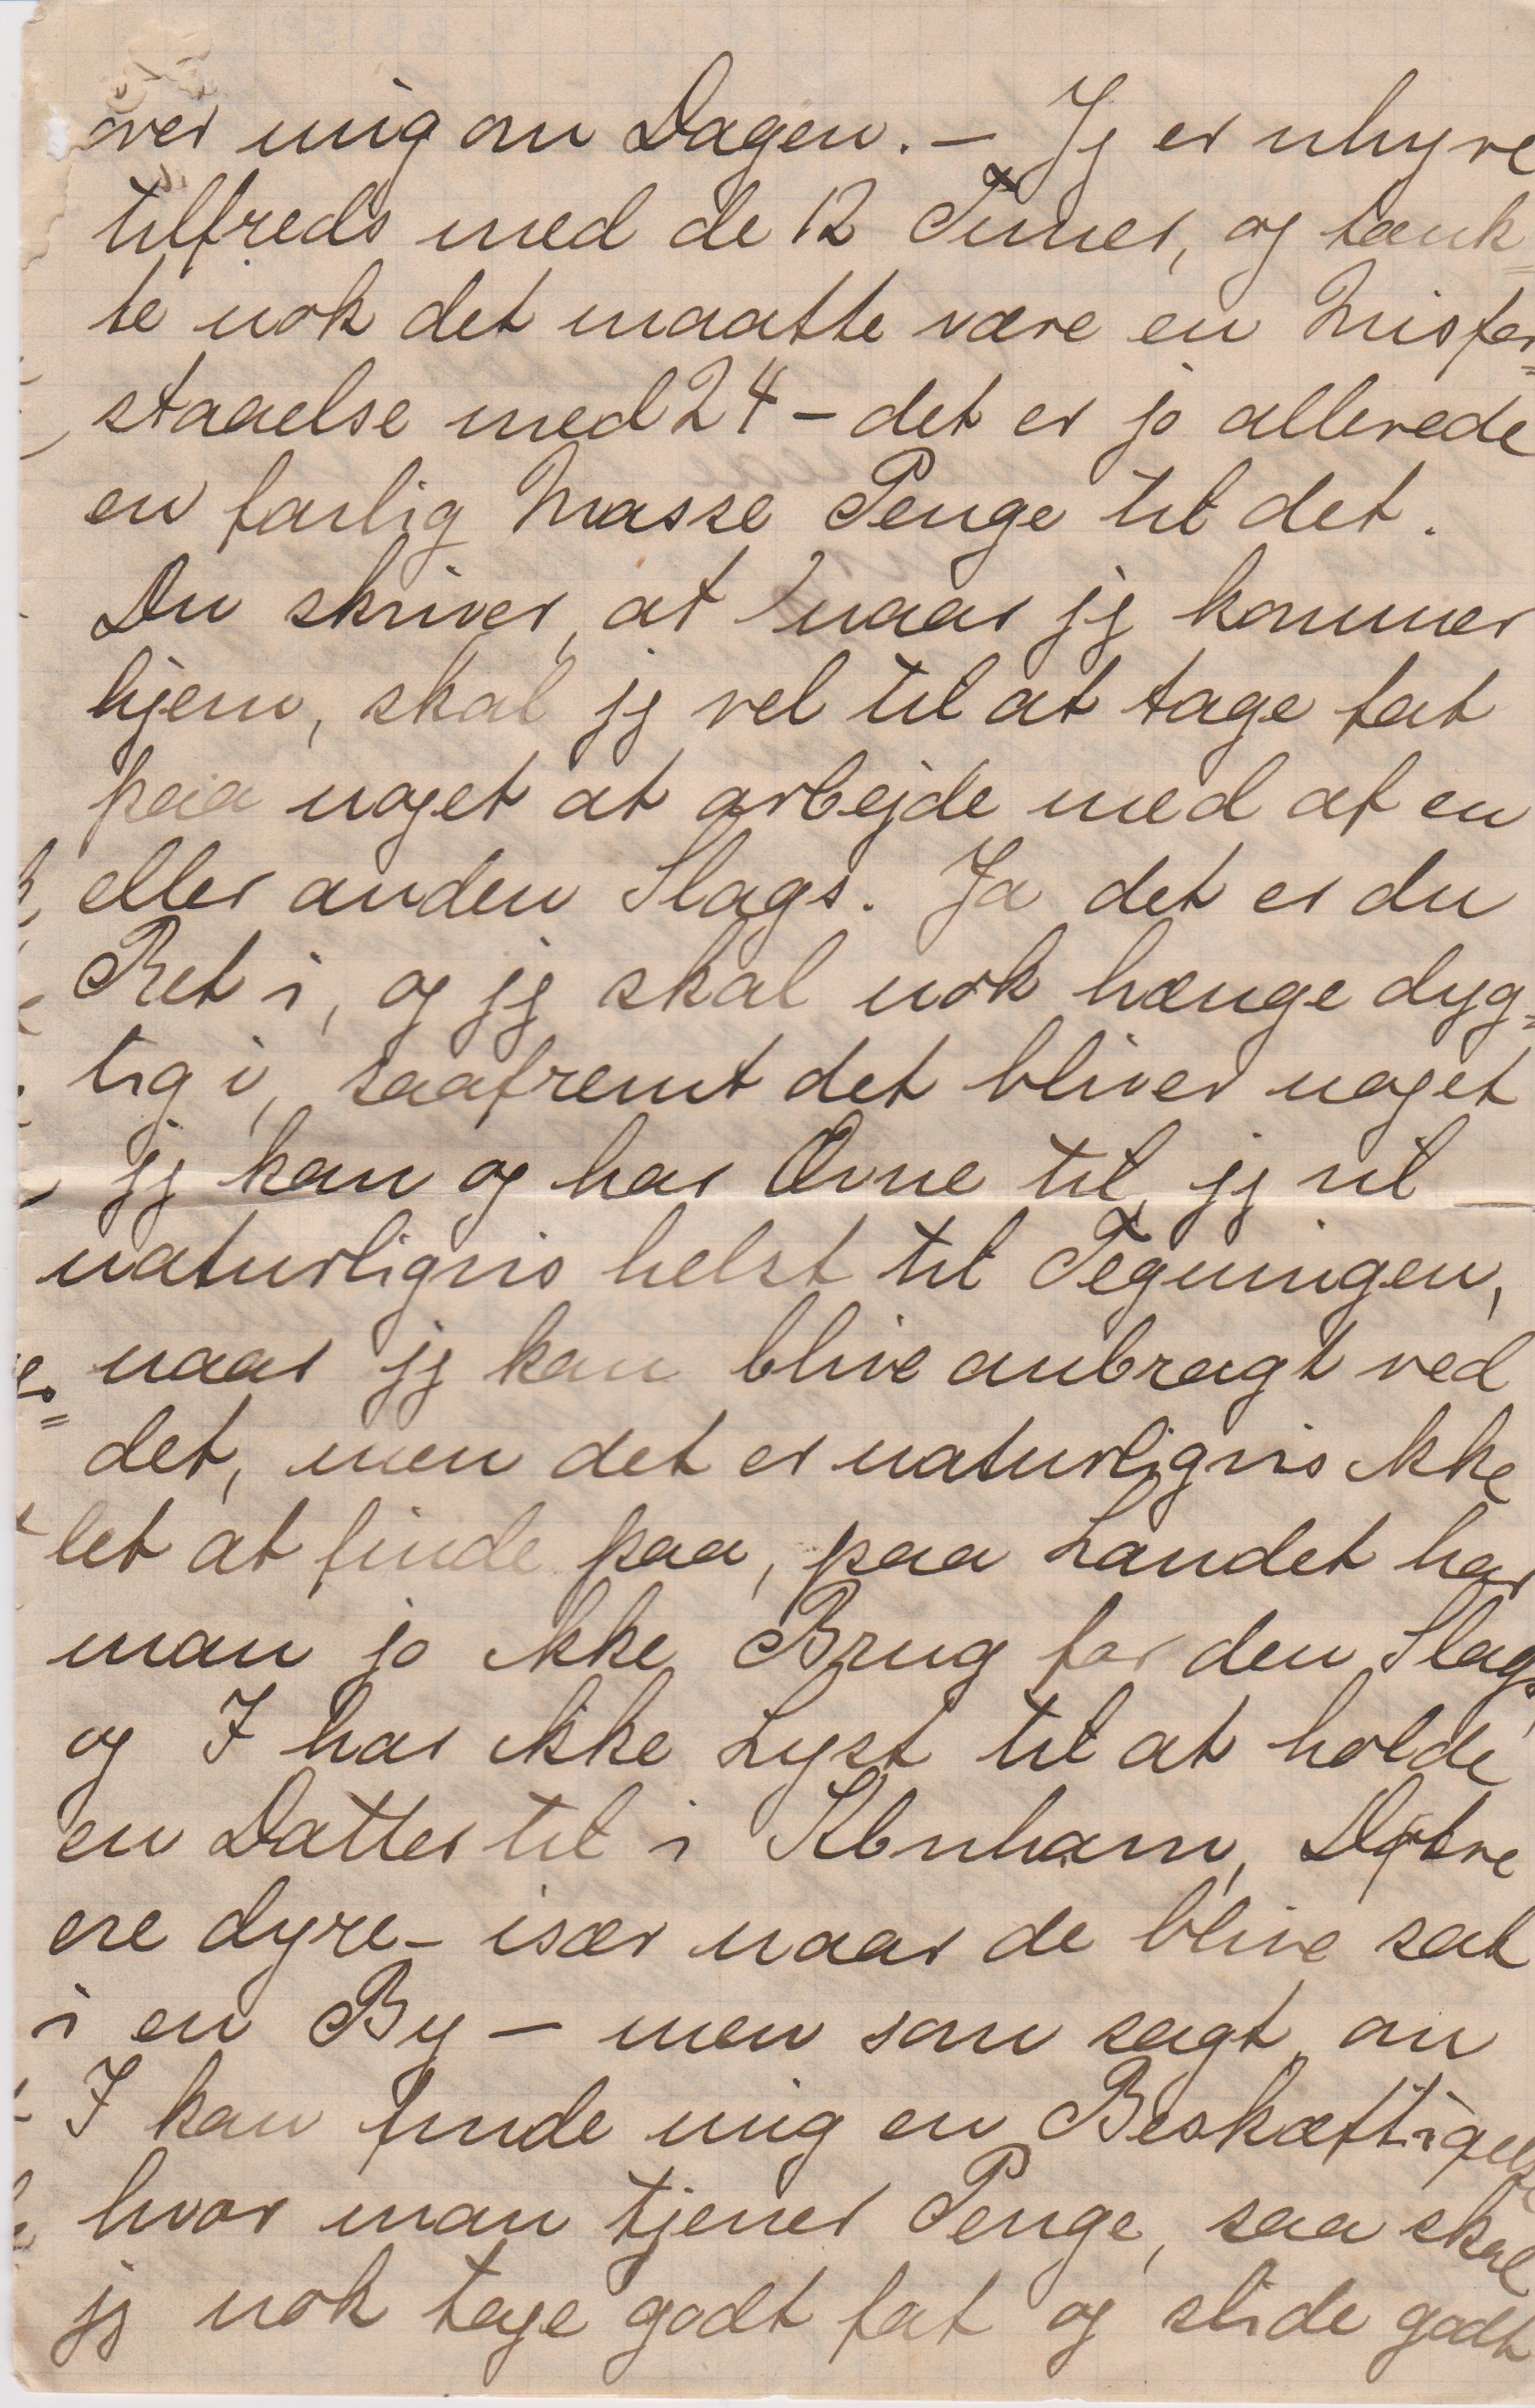 over mig om Dagen. – Jeg er uhyre
tilfreds med de 12 Timer, og tænk=
te nok det maatte være en Misfor=
staaelse med 24 – det er jo allerede
en farlig Masse Penge til det.
Du skriver, at naar jeg kommer
hjem, skal jeg vel til at tage fat
paa noget at arbejde med af en
eller anden Slags. Ja det er du
Ret i, og jeg skal nok hænge dyg=
tig i, saafremt det bliver noget
jeg kan og har Evne til, jeg vil
naturligvis helst til Tegningen,
naar jeg kan blive anbragt ved
det, men det er naturligvis ikke
let at finde paa, paa Landet har
man jo ikke Brug for den Slags,
og I har ikke Lyst til at holde
en Datter til i Kbnhavn, Døtre
ere dyre – især naar de blive sat
i en By – men som sagt, om
I kan finde mig en Beskæftigelse
hvor man tjener Penge, saa skal
jeg nok tage godt fat og slide godt